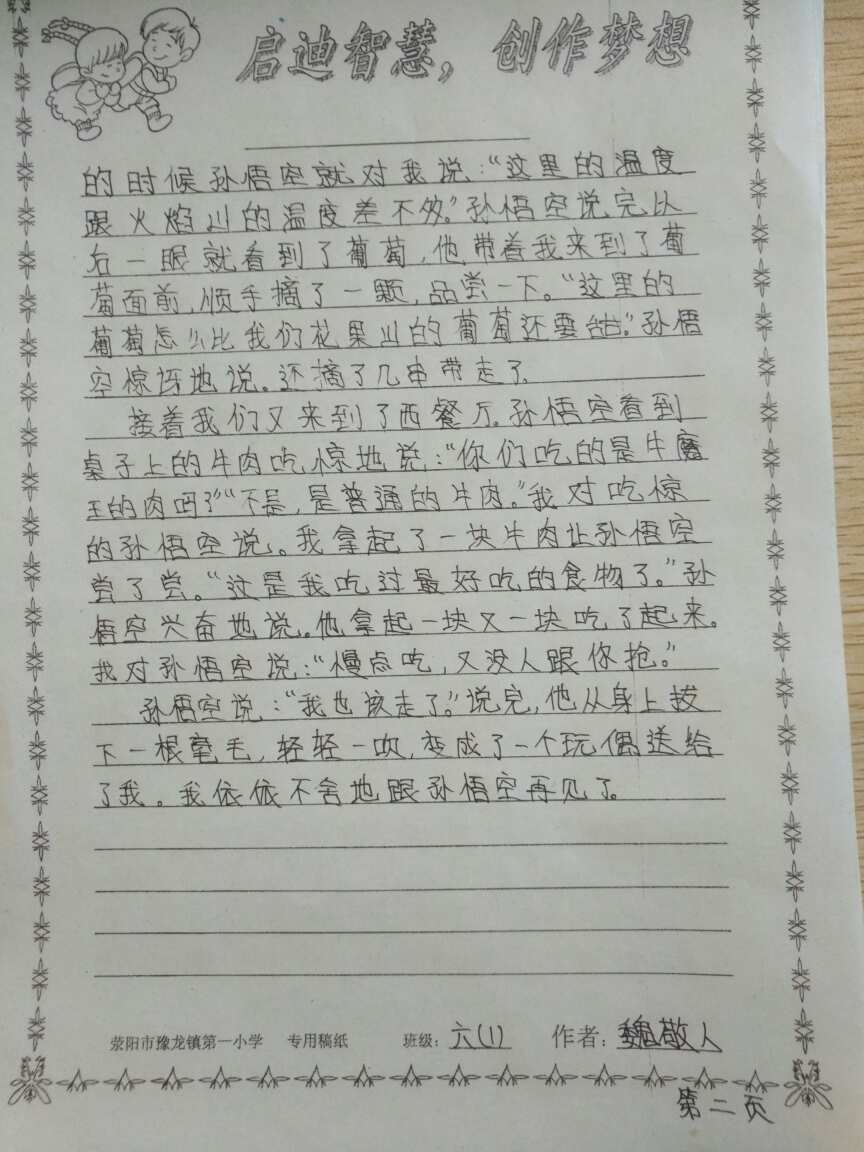 启迪智慧，创作梦想
的时候孙悟空就对我说：“这里的温度
跟火焰山的温度差不多。”孙悟空说完从
右一眼就看到了葡萄，他带着我来到了葡
萄面前，顺手摘了一颗，品尝一下。“这里的
葡萄怎么比我们花果山的葡萄还要甜。”孙悟
空惊讶地说。还摘了几串带走了。
接着我们又来到了西餐厅。孙悟空看到
桌子上的牛肉吃惊地说：“你们吃的是牛魔
王的肉吗？”“不是，是普通的牛肉。”我对吃惊
的孙悟空说。我拿起了一块牛肉让孙悟空
尝了尝。“这是我吃过最好吃的食物了。”孙
悟空兴奋地说。他拿起一块又一块吃了起来。
我对孙悟空说：“慢点吃，又没人跟你抢。”
孙悟空说：“我也该走了。”说完，他从身上拔
下一根毫毛，轻轻一吹，变成了一个玩偶送给
了我。我依依不舍地跟孙悟空再见了。
荥阳市豫龙镇第一小学 专用稿纸 班级：六(1) 作者：魏敬人
第二页